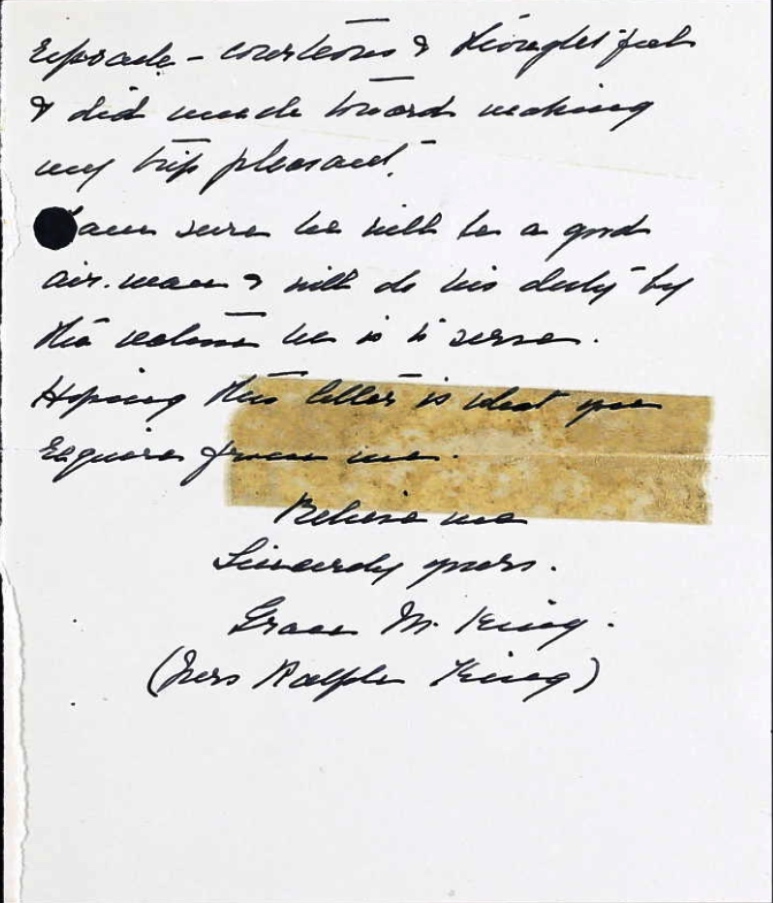 courteous & thoughtful
& did much toward making
my trip pleasant.
I am sure he will be a good
air-man & will do his duty by
the nation he is to serve.
Hoping this letter is what you
require from me.
Believe me
Sincerely yours.
Grace M. King.
(Mrs Ralph King)